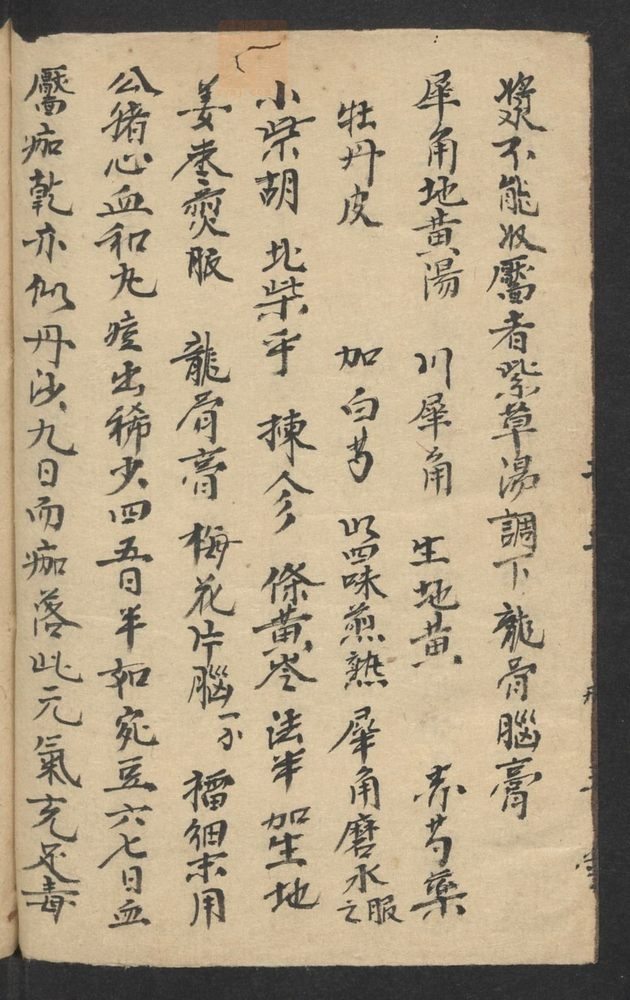 漿不能收靨者紫草湯調下龍骨腦膏
犀角地黃湯 川犀角 生地黃 赤芍藥
牡丹皮 加白芍 以四味煎熟 犀角磨水服之
小柴胡 北柴乎 揀參 條黃芩 法半 加生地
姜棗煎服 龍骨膏 梅花片腦一分 擂細末用
公猪心血和丸 痘出稀少四五日半如宛豆六七日血
靨痂乾亦似丹沙九日而痂落此元氣充足毒